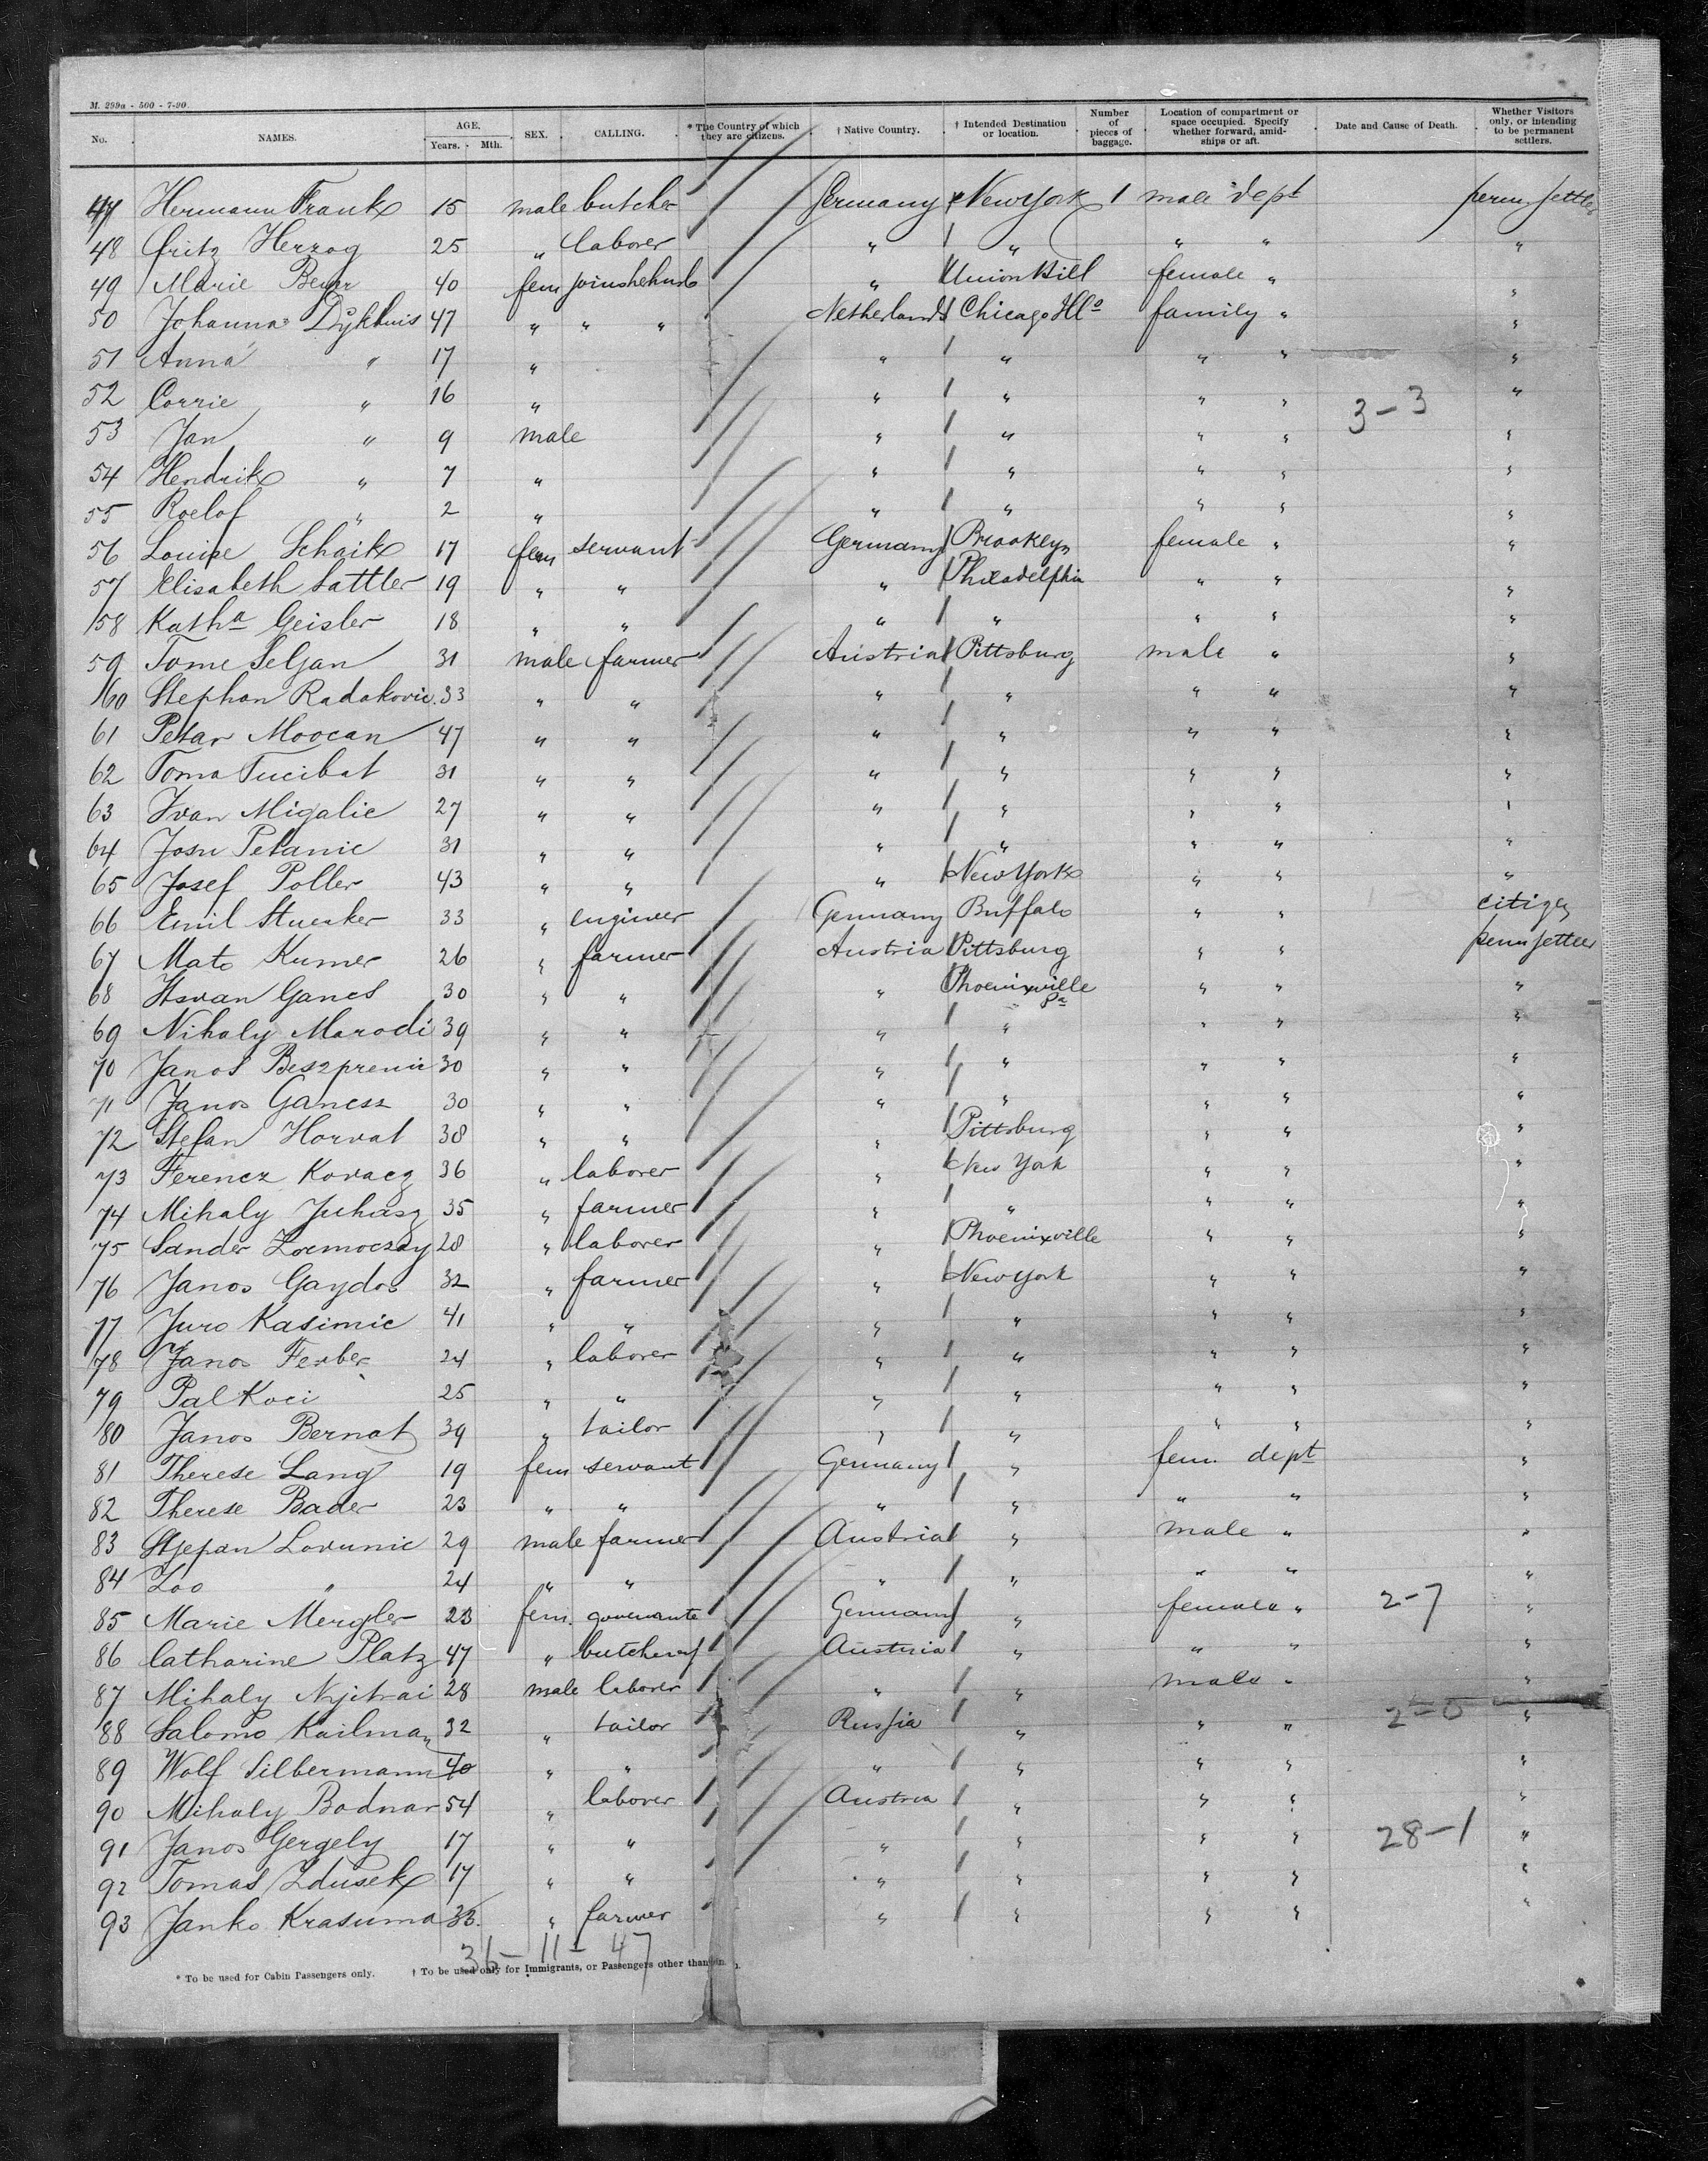 M. 299a - 500 - 7-90
No. NAMES. AGE. Years. Mth. SEX. CALLING. * The Country of which they are citizens. † Native Country. † Intended Destination or location. Number of pieces of baggage. Location of compartment or space occupied. Specify whether forward, amidships or aft. Date and Cause of Death. Whether Visitors only, or intending to be permanent settlers.
47 Hermann Frank 15 male butcher Germany New York 1 male dept perm. settler
48 Fritz Herzog 25 " laborer " " " " "
49 Marie 40 fem joins her husb " Union Hill female " "
50 Johanna Dijkhuis 47 " " " Netherlands Chicago Ills family " "
51 Anna " 17 " " " " " "
52 Corrie " 16 " " " " " "
53 Jan " 9 male " " " " "
3-3
54 Hendrik " 7 " " " " " "
55 Roelof " 2 " " " " " "
56 Louise Schaik 17 fem servant Germany Brooklyn female " "
57 Elisabeth Sattler 19 " " " Philadelphia " " "
58 Katha Geisler 18 " " " " " " "
59 Tome Seljan 31 male farmer Austria Pittsburg male " "
60 Stephan Radakovic 33 " " " " " " "
61 Petar Moocan 47 " " " " " " "
62 Toma Tucibat 31 " " " " " " "
63 Ivan Migalic 27 " " " " " " "
64 Josu Petanic 31 " " " " " " "
65 Josef Poller 43 " " " New York " " "
66 Emil Stuecker 33 " engineer Germany Buffalo " " citizen
67 Mato Kumer 26 " farmer Austria Pittsburg " " perm settler
68 Istvan Ganes 30 " " " Phoenixville Pa " " "
69 Nihaly Marodi 39 " " " " " " "
70 Janos Beszpremi 30 " " " " " " "
71 Janos Ganess 30 " " " " " " "
72 Stefan Horvat 38 " " " Pittsburg " " "
73 Ferencz Kovacz 36 " laborer " New York " " "
74 Mihaly Juhasz 35 " farmer " " " " "
75 Sander 28 " laborer " Phoenixville " " "
76 Janos Gaydos 32 " farmer " New York " " "
77 Juro Kasimic 41 " " " " " " "
78 Janos Ferber 24 " laborer " " " " "
79 Pal Koci 25 " " " " " " "
80 Janos Bernat 39 " tailor " " " " "
81 Therese Lang 19 fem servant Germany " fem. dept "
82 Therese Bader 23 " " " " " " "
83 Stjepan Lovunic 29 male farmer Austria " male " "
84 Loo " 24 " " " " " " "
85 Marie Mergler 23 fem. gouvernante Germany " female " 2-7 "
86 Catharine Platz 47 " Austria " " " "
87 Mihaly Nyitrai 28 male laborer " " male " "
88 Salomo Kailman 32 " tailor Russia " " " 2-0 "
89 Wolf Silbermann 40 " " " " " " "
90 Mihaly Bodnar 54 " laborer Austria " " " "
91 Janos Gergely 17 " " " " " " 28-1 "
92 Tomas Zdusek 17 " " " " " " "
93 Janko Krasuma 33. " farmer " " " " "
36-11-47
* To be used for Cabin Passengers only. † To be used only for Immigrants, or Passengers other than